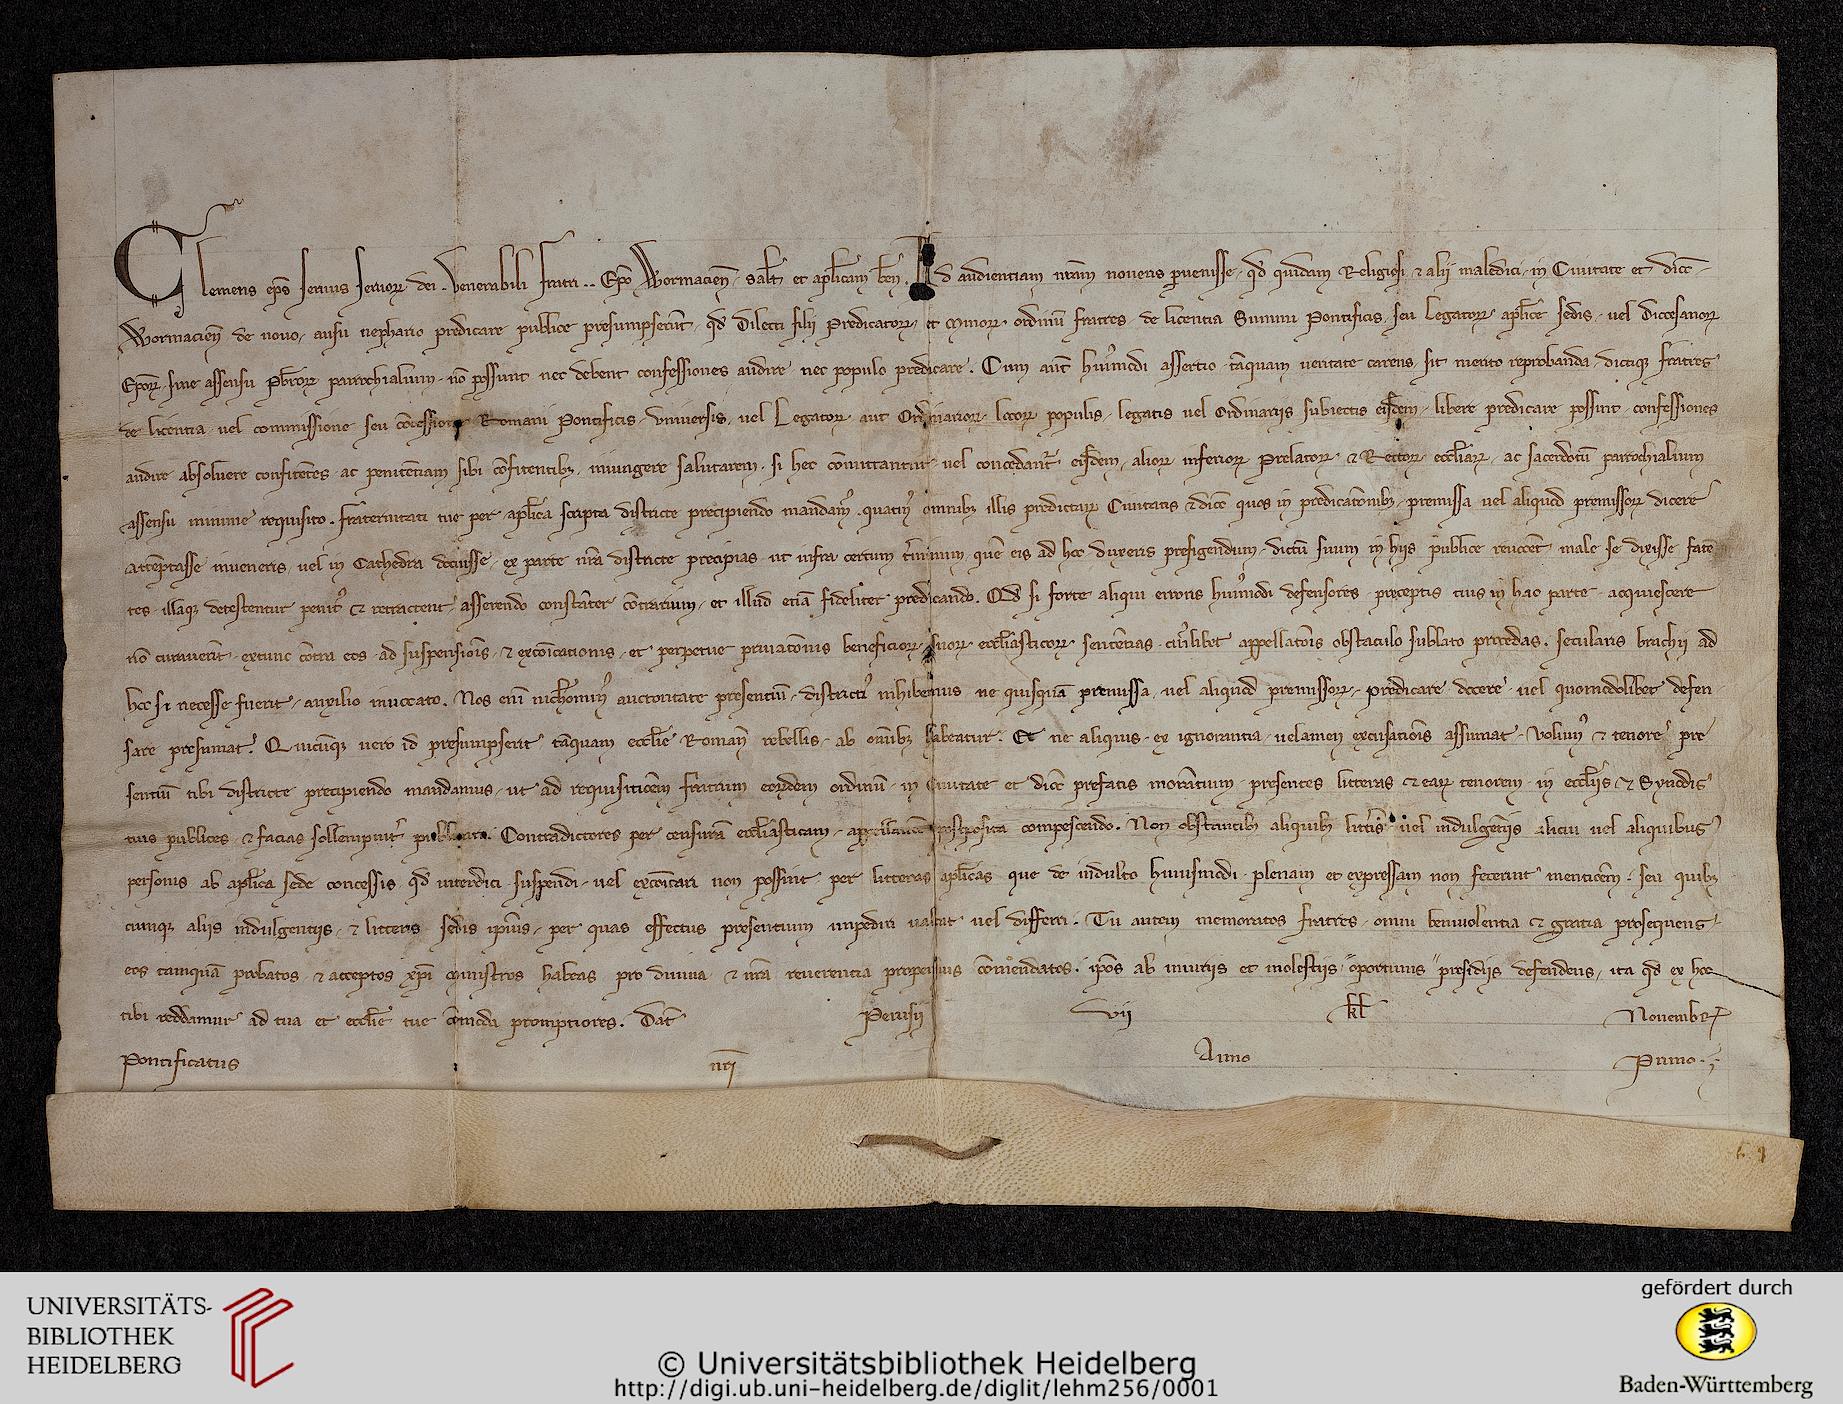 Clemens ep̄s seruus seruoꝝ dei. Venerabili fratri .. Ep̄o Wormacien̄ salt̄ et apl̄icam ben̄. Ad audientiam nr̄am noueris peruenisse, qd̄ quidam Religiosi, ⁊ alij maledici in Ciuitate et dioc̄
Wormacien̄ de nouo, ausu nephario predicare publice presumpserūt, qd̄ Dilecti filij Predicatoꝝ, et Minoꝝ ordinū fratres, de licentia Summi Pontificis, seu Legatoꝝ apl̄ice sedis, uel Diocesanoꝝ
Ep̄oꝝ, sine assensu pb̄roꝝ parrochialium, nō possunt nec debent confessiones audire nec populo predicare. Cum aut̄ huiꝰmodi assertio tāquam ueritate carens, sit merito reprobanda, dictiqꝫ fratres
de licentia uel commissione seu cōcessione Romani Pontificis, vniuersis, uel Legatoꝝ aut Ordinarioꝝ locoꝝ populis, legatis uel Ordinarijs subiectis eisdem, libere predicare possint, confessiones
audire absoluere confitētes, ac penitētiam sibi cōfitentibꝫ, iniungere salutarem, si hec cōmittantur uel concedant᷑ eisdem, alioꝝ inferioꝝ Prelatoꝝ ⁊ Rectoꝝ ecclīaꝝ, ac sacerdotū parrochialium
assensu minime requisito. fraternitati tue per apl̄ica scripta districte precipiendo mandamꝰ, quatinꝰ omnibꝫ illis predictaꝝ Ciuitatis ⁊ dioc̄ quos in predicatōnibꝫ, premissa uel aliquid premissoꝝ dicere
attēptasse inueneris, uel in Cathedra docuisse, ex parte nr̄a districte precipias, ut infra certum t̄minum, quē eis ad hoc duxeris prefigendum, dictū suum in hijs publice reuocēt, male se dixisse fatē
tes, illaqꝫ detestentur penitꝰ ⁊ retractent, asserendo constāter cōtrarium, et illud etiā fideliter predicando. Qd̄ si forte aliqui erroris huiꝰmodi defensores, preceptis tuis in hac parte, acquiescere
nō curauerīt, extunc cōtra eos, ad suspensiōis, ⁊ excōicationis, et perpetue priuatōnis beneficioꝝ suoꝝ ecclīasticoꝝ sentētias, cuiꝰlibet appellatōis obstaculo sublato procedas, secularis brachij ad
hoc si necesse fuerit, auxilio inuocato. Nos eni᷑ nichilominꝰ auctoritate presentiū, districtiꝰ inhibemus ne quisquā premissa, uel aliquid premissoꝝ, predicare docere, uel quomodolibet defen
sare presumat. Quicūqꝫ uero id presumpserit tāquam ecclīe Roman̄ rebellis, ab omībꝫ habeatur. Et ne aliquis, ex ignorantia, uelamen excusatiōis assumat, Volumꝰ ⁊ tenore pre
sentiū tibi districte precipiendo mandamus, ut ad requisitiōem fratrum eoꝝdem ordinū in Ciuitate et dioc̄ prefatis morātium, presentes litteras ⁊ eaꝝ tenorem, in ecclīis ⁊ Synodis
tuis publices, ⁊ facias sollempnit᷑ publicari. Contradictores per censurā ecclīasticam, appellatiōe postposita compescendo. Non obstantibꝫ aliquibꝫ litt̄is uel indulgētijs alicui uel aliquibus
personis ab apl̄ica sede concessis, qd̄ interdici suspendi, uel excōicari non possint, per litteras apl̄icas que de indulto huiusmodi, plenam et expressam non fecerint mentiōem, seu quibꝫ
cumqꝫ alijs indulgentijs, ⁊ litteris sedis ipīus, per quas effectus presentium impediri ualeat uel differri. Tu autem memoratos fratres, omni beniuolentia ⁊ gratia prosequens,
eos tamquā probatos, ⁊ acceptos xp̄i Ministros habeas, pro diuina, ⁊ nr̄a reuerentia propensius cōmēdatos, ip̄os ab iniurijs et molestijs, oportunis presidijs defendens, ita qd̄ ex hoc
tibi reddamur ad tua et ecclīe tue cōmoda promptiores. Dat̄ Perusij vij kl̄ Nouembꝝ
Pontificatus nr̄i Anno Primo.
UNIVERSITÄTS-
BIBLIOTHEK
HEIDELBERG
© Universitätsbibliothek Heidelberg
http://digi.ub.uni-heidelberg.de/diglit/lehm256/0001
gefördert durch
Baden-Württemberg